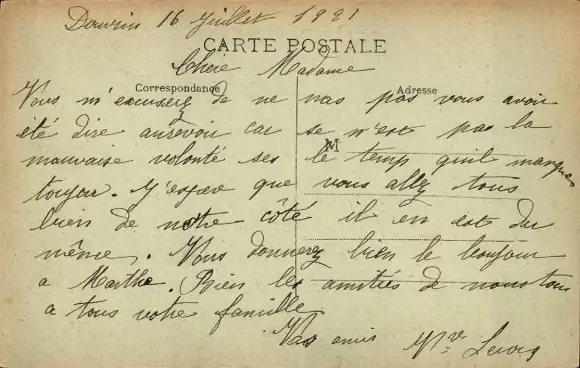 Douvrin 16 Juillet 1921
CARTE POSTALE
Chère Madame
Correspondance
Adresse
Vous m'excuserez de ne nas pas vous avoir
été dire aurevoir car se n'est pas la
M
mauvaise volonté ses le temp qui manques
toujou. J'espère que vous allez tous
bien de notre côté il en est du
même. Vous donnerez bien le bonjour
a Marthe. Bien les amitiés de nous tous
a tous votre famille
Vos amis